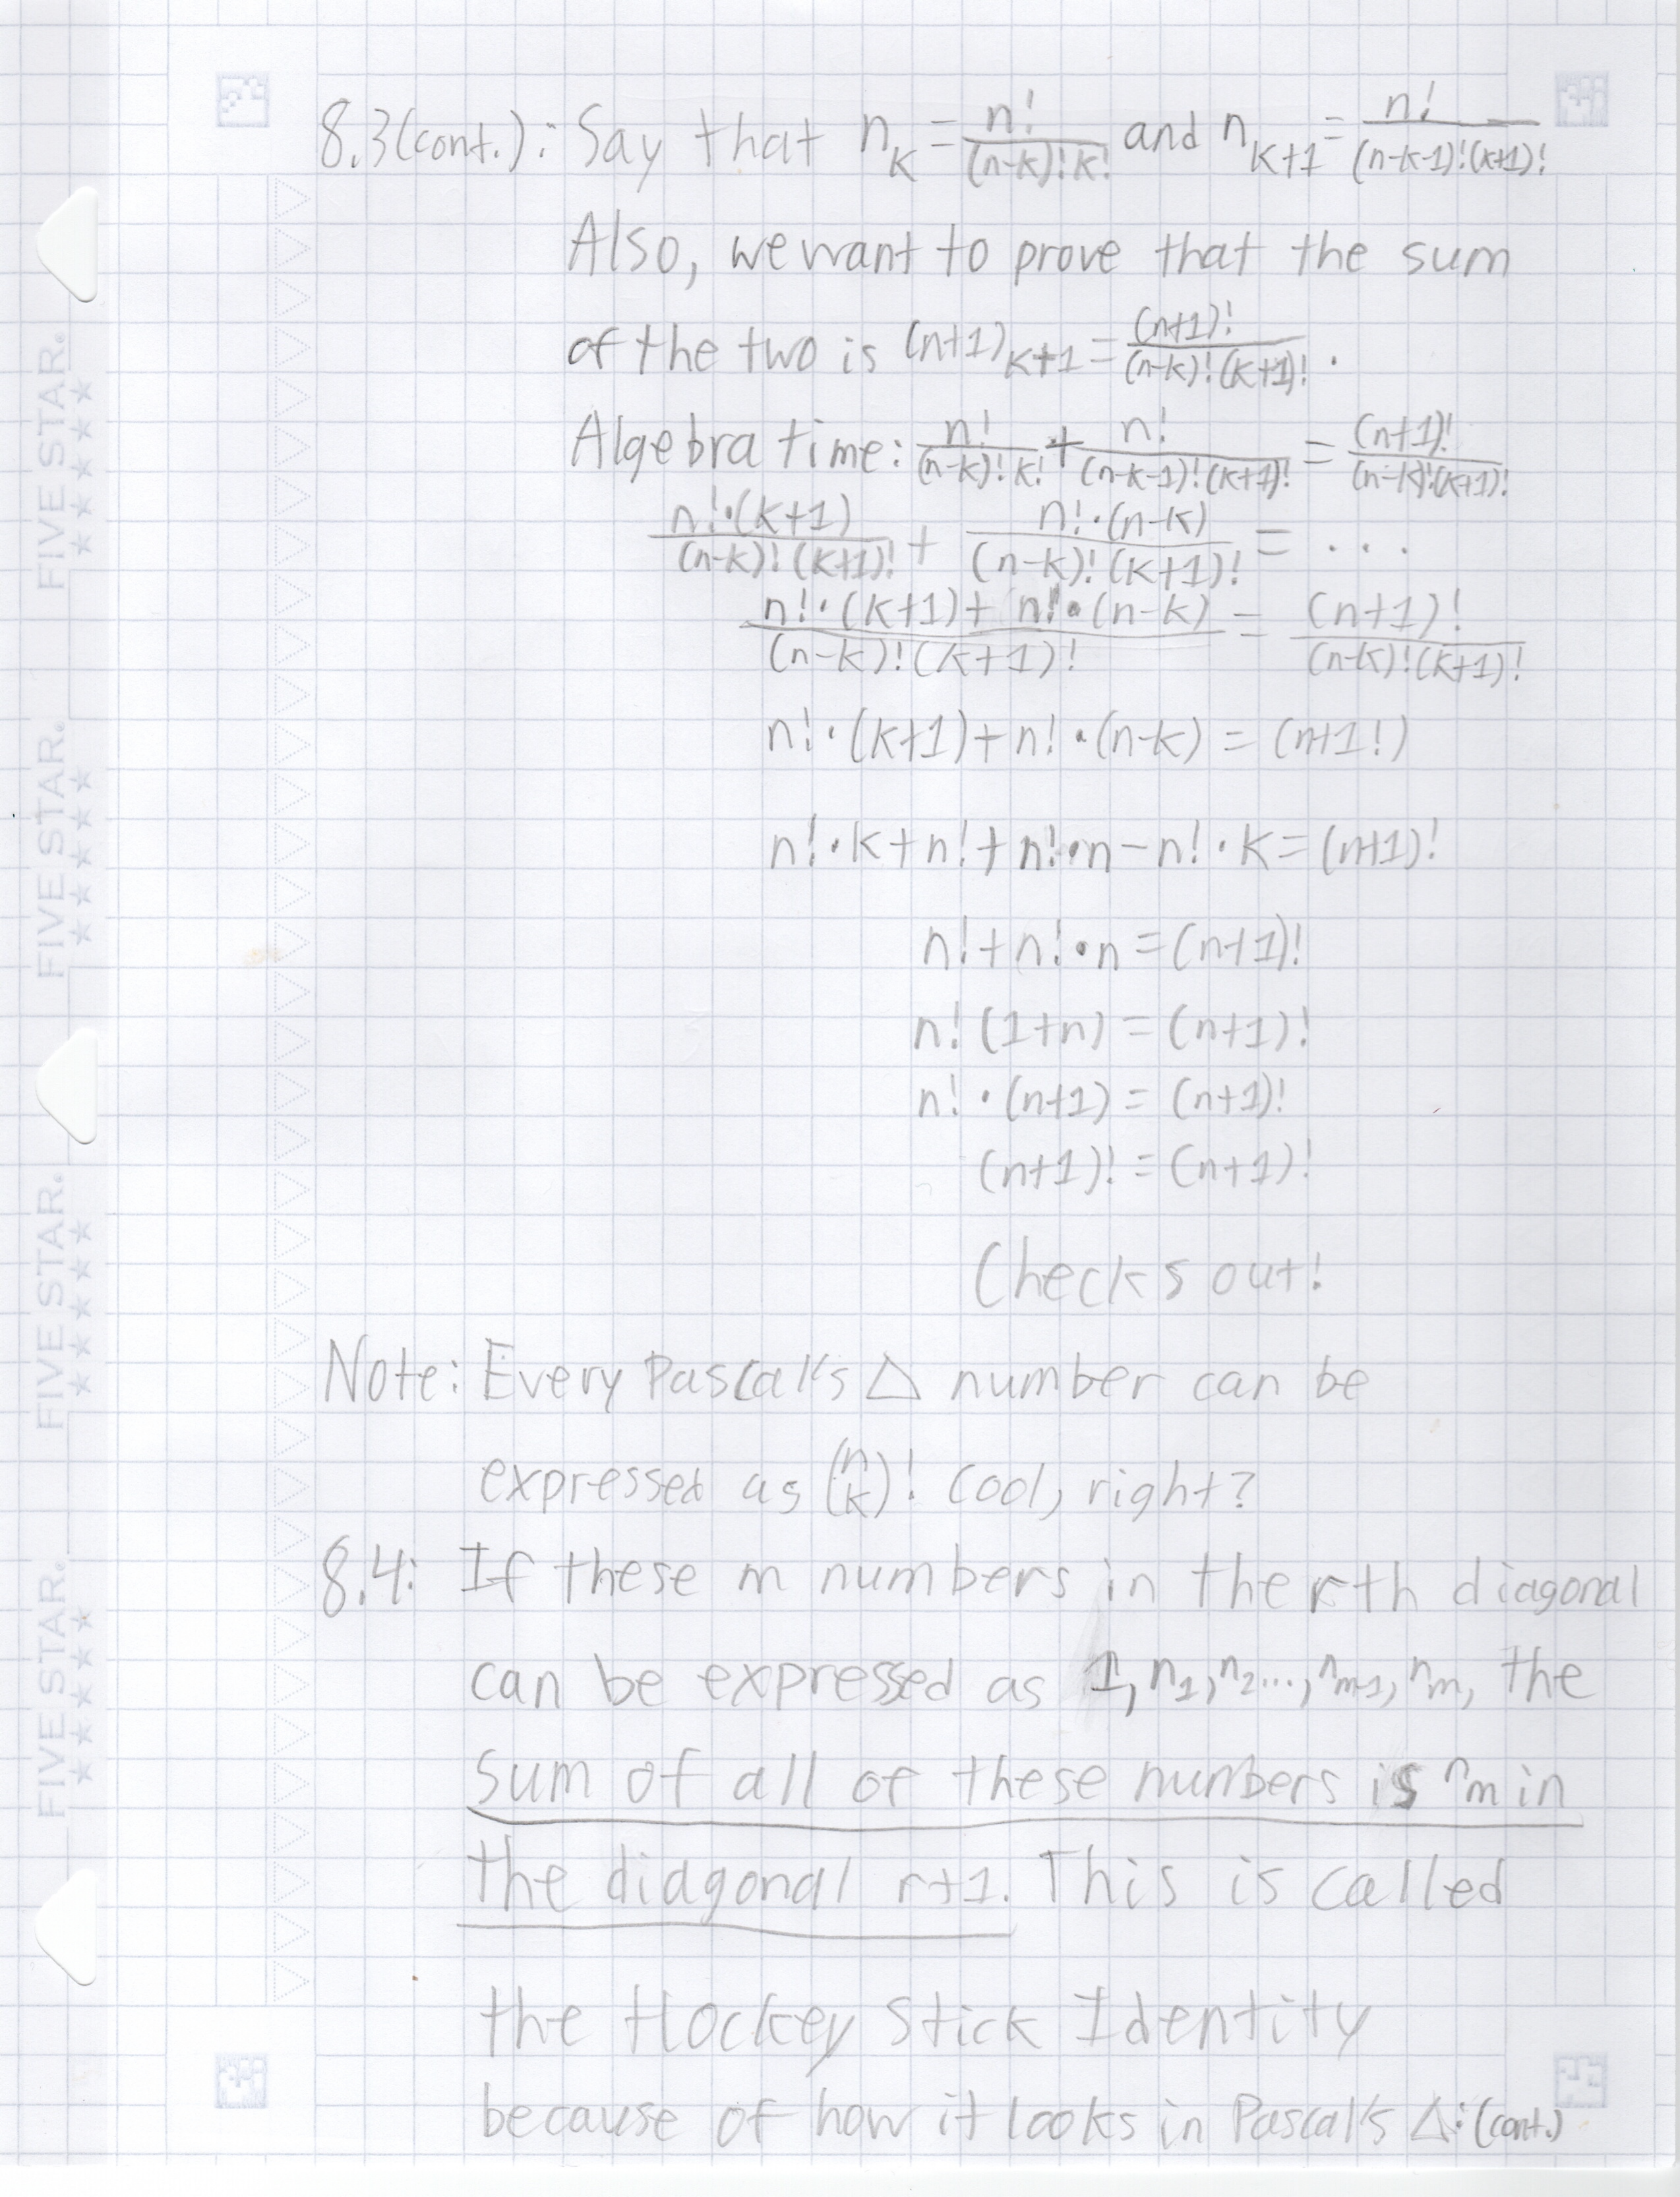 8.3(cont.): Say that n_K = n!/((n-k)!k!) and n_{K+1} = n!/((n-k-1)!(k+1)!)
Also, we want to prove that the sum
of the two is (n+1)_{K+1} = (n+1)!/((n-k)!(k+1)!).
Algebra time: n!/((n-k)!k!) + n!/((n-k-1)!(k+1)!) = (n+1)!/((n-k)!(k+1)!)
n!·(k+1)/((n-k)!(k+1)!) + n!·(n-k)/((n-k)!(k+1)!) = ...
(n!·(k+1)+n!·(n-k))/((n-k)!(k+1)!) = (n+1)!/((n-k)!(k+1)!)
n!·(k+1)+n!·(n-k) = (n+1!)
n!·k+n!+n!·n-n!·k=(n+1)!
n!+n!·n=(n+1)!
n!(1+n) = (n+1)!
n!·(n+1) = (n+1)!
(n+1)! = (n+1)!
Checks out!
Note: Every Pascal's △ number can be
expressed as (n k)! Cool, right?
8.4: If these m numbers in the rth diagonal
can be expressed as 1, n_1, n_2..., n_{m-1}, n_m, the
sum of all of these numbers is n_m in
the diagonal r+1. This is called
the Hockey Stick Identity
because of how it looks in Pascal's △: (cont.)
FIVE STAR.
★★★★
FIVE STAR.
★★★★
FIVE STAR.
★★★★
FIVE STAR.
★★★★